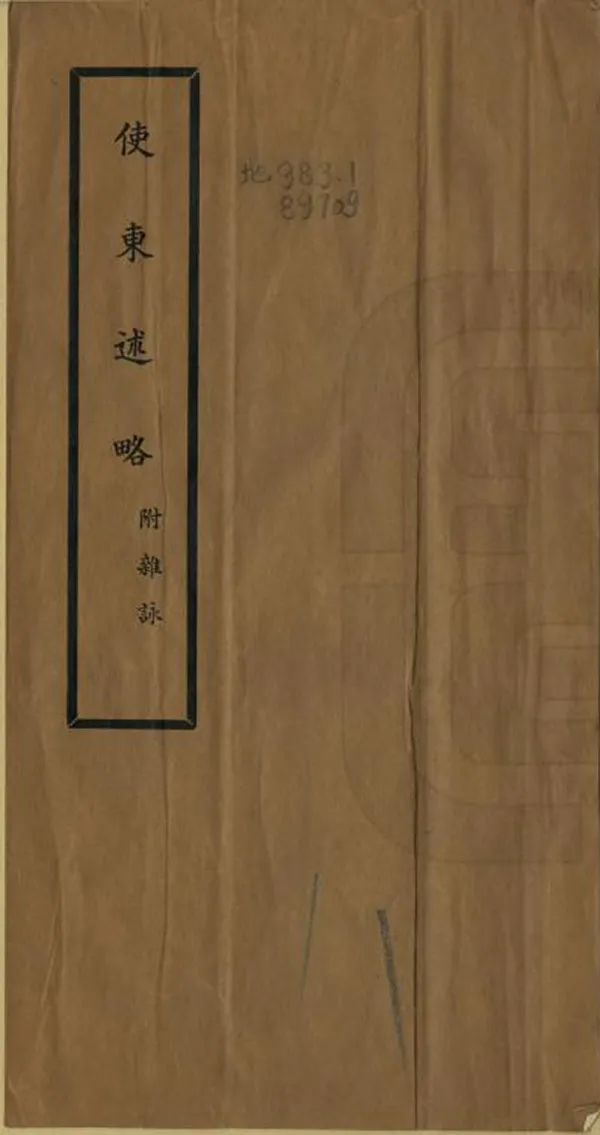 使東述略
附雜詠
地983.1
89709